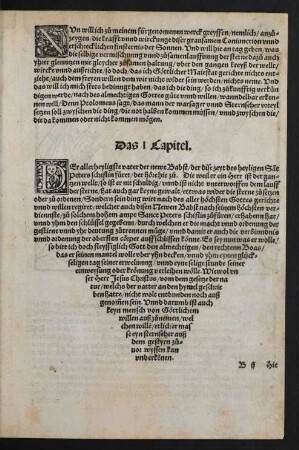 NUn will ich zu meinem fürgenomenen werck greyffen/nemlich/ anzů-
zeygen die krafft vnnd wirckunge diser grausamen Coniunction vnnd
erschrecklichen finsternis der Sonnen. Vnnd will hie an tag geben/ was
die selbige vermischung vnnd zůsamenlauffung der sterne dazů auch
yhrer glenntzen
wirckt vnnd außricht/ so doch/ das ich Götlicher Maiestat gerichte nichts ent-
ziehe/ auch dem freyen willen dem mir nicht wider ist sein werden/ nichts neme. Vnd
das will ich mich
sagen/ wye/ nach des almechtigen Gottes güte vnnd willen/
nen will/ Denn Ptolomeus sagt/ das mann der warsager vnnd Sternseher
zeygen soll zwyschen die ding/ die not halben kommen müssen/ vnnd zwyschen die/
die da kommen oder nicht kommen mögen.
Das I Capitel.
DEr allerheyligste vater der newe Babst/ der dise zeyt des heyligen Sāt
Peters schifflin füret/ der höre hie zů. Die weil er ein herr ist der gan-
tzen welt/ so ist er mit schuldig/ vnnd ist nicht vnterworffen dem lauff
der sterne/ hat auch gar keyne gewalt/ etwas durch die sterne zů
oder zů ordenen/ Sondern sein ding wirt nach des aller höchsten Gottes gerichte
vnd willen regiret/ welcher auch disen Newen Babst nach seinem höchsten ver-
dienste/ zů solchem hohem ampt Sanct Peters schifflin zů füren/ erhaben hat/
vnnd yhm den schlüssel gegeben/ durch welchen er die macht vnnd ordenung der
gestirne vnnd yhr deutung zůtrennen müge/ vnnd damit er auch die verbündnis
vnnd ordenung der obersten cörper auffschliessen künne. Es sey nun was er wölle/
so bitt ich doch fleyssiglich Gott den almechtigen/ den rechtenn Boas/
das er seinen mantel wölle vber yhn decken/ vnnd yhm eynen glück-
seligen tag seiner erwelung/ vnnd eyn selige stunde seiner
einweysung oder krönung verleihen wölle. Wie wol vn
ser herr Jesus Christus/ von dem gesetz der na
tur/ welchs der vatter an den hymel geschrie
ben hatte/ nicht wolt entbunden noch auß
genomen sein. Vnnd darumb ist auch
keyn mensch von Götlichem
willen auß zůneinen/ wel
chen wille/ etlicher mas
se eyn sternseher auß
dem gestyrn zů-
uor wyssen kan
vnd erkönen.
B ij hie